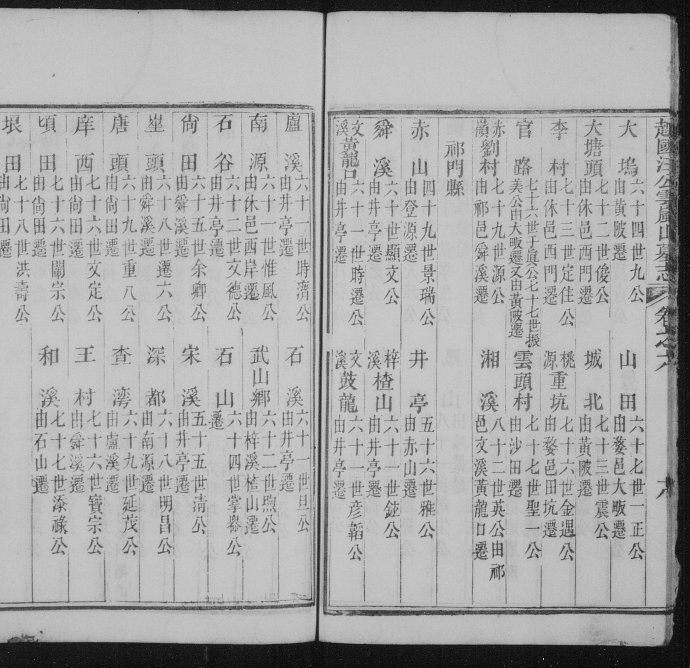 越國汪公雲嵐山墓志 卷之
大塢 六十四世九公由黃陂遷 山田 六十七世一正公由婺邑大畈遷
大塘頭 七十二世俊公由休邑西門遷 城北 七十三世震公由黃陂遷
李村 七十三世定住公由休邑西門遷 桃源重坑 七十六世金遇公由婺邑田坑遷
官路 七十六世于真公七十七世振美公由大畈遷又由黃陂遷 雲頭村 七十七世聖一公由沙田遷
赤嶺劉村 七十九世源公由祁邑舜溪遷 湘溪 八十二世英公由祁邑文溪黃龍口遷
祁門縣
赤山 四十九世景瑞公由登源遷 井亭 五十六世雅公由赤山遷
舜溪 六十世顯文公由井亭遷 梓溪楂山 六十一世鋐公由井亭遷
文溪黃龍口 六十一世時遷公由井亭遷 文溪鼓龍 六十一世彥韜公由井亭遷
盧溪 六十一世時濟公由井亭遷 石溪 六十一世旦公由井亭遷
南源 六十一世惟風公由休邑西岸遷 武山鄉 六十二世煦公由梓溪楂山遷
石谷 六十二世文德公由井亭遷 石山 六十四世掌舉公遷
尙田 六十五世余卿公由舜溪遷 宋溪 五十五世清公由井亭遷
頭 六十八世遷六公由舜溪遷 深都 六十八世明昌公由南源遷
唐頭 六十九世重八公由尙田遷 查灣 六十九世延茂公由盧溪遷
庠西 七十六世文定公由尙田遷 王村 七十六世寳宗公由舜溪遷
頃田 七十六世關宗公由尙田遷 和溪 七十七世添祿公由石山遷
垠田 七十八世洪壽公由尙田遷